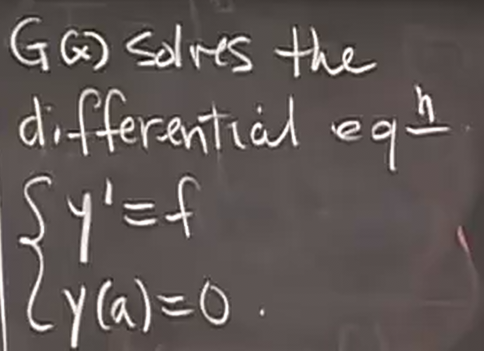 G(x) solves the
differential eqn.
{ y' = f
y(a) = 0.